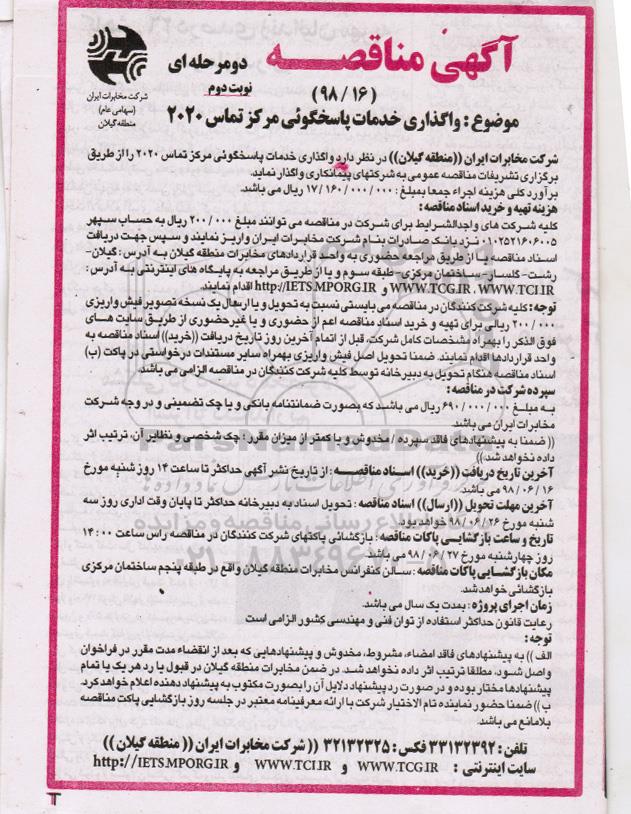 آگهی مناقصه
دومرحله ای
نوبت دوم
(۹۸/۱۶)
شرکت مخابرات ایران
(سهامی عام)
منطقه گیلان
موضوع : واگذاری خدمات پاسخگوئی مرکز تماس ۲۰۲۰
شرکت مخابرات ایران ((منطقه گیلان)) در نظر دارد واگذاری خدمات پاسخگوئی مرکز تماس ۲۰۲۰ را از طریق
برگزاری تشریفات مناقصه عمومی به شرکتهای پیمانکاری واگذار نماید.
برآورد کلی هزینه اجراء جمعا بمبلغ : ۱۷/۱۶۰/۰۰۰/۰۰۰ ریال می باشد.
هزینه تهیه و خرید اسناد مناقصه :
کلیه شرکت های واجدالشرایط برای شرکت در مناقصه می توانند مبلغ ۲۰۰/۰۰۰ ریال به حساب سپهر
۰۱۰۲۵۲۱۶۰۶۰۰۵ نزد بانک صادرات بنام شرکت مخابرات ایران واریز نمایند و سپس جهت دریافت
اسناد مناقصه یا از طریق مراجعه حضوری به واحد قراردادهای مخابرات منطقه گیلان به آدرس : گیلان-
رشت- گلسار- ساختمان مرکزی- طبقه سوم و یا از طریق مراجعه به پایگاه های اینترنتی به آدرس :
WWW.TCG.IR ، WWW.TCI.IR و http://IETS.MPORG.IR اقدام نمایند.
توجه : کلیه شرکت کنندگان در مناقصه می بایستی نسبت به تحویل و یا ارسال یک نسخه تصویر فیش واریزی
۲۰۰/۰۰۰ ریالی برای تهیه و خرید اسناد مناقصه اعم از حضوری و یا غیرحضوری از طریق سایت های
فوق الذکر را بهمراه مشخصات کامل شرکت، قبل از اتمام آخرین روز تاریخ دریافت ((خرید)) اسناد مناقصه به
واحد قراردادها اقدام نمایند. ضمنا تحویل اصل فیش واریزی بهمراه سایر مستندات درخواستی در پاکت (ب)
اسناد مناقصه هنگام تحویل به دبیرخانه توسط کلیه شرکت کنندگان در مناقصه الزامی می باشد.
سپرده شرکت در مناقصه :
به مبلغ ۶۹۰/۰۰۰/۰۰۰ ریال می باشد که بصورت ضمانتنامه بانکی و یا چک تضمینی و در وجه شرکت
مخابرات ایران می باشد.
(( ضمنا به پیشنهادهای فاقد سپرده / مخدوش و یا کمتر از میزان مقرر : چک شخصی و نظایر آن، ترتیب اثر
داده نخواهد شد.))
آخرین تاریخ دریافت ((خرید)) اسناد مناقصه : از تاریخ نشر آگهی حداکثر تا ساعت ۱۴ روز شنبه مورخ
۹۸/۰۶/۱۶ می باشد.
آخرین مهلت تحویل ((ارسال)) اسناد مناقصه : تحویل اسناد به دبیرخانه حداکثر تا پایان وقت اداری روز سه
شنبه مورخ ۹۸/۰۶/۲۶ خواهد بود.
تاریخ و ساعت بازگشایی پاکات مناقصه : بازگشائی پاکتهای شرکت کنندگان در مناقصه راس ساعت ۱۴:۰۰
روز چهارشنبه مورخ ۹۸/۰۶/۲۷ می باشد.
مکان بازگشایی پاکات مناقصه : سالن کنفرانس مخابرات منطقه گیلان واقع در طبقه پنجم ساختمان مرکزی
بازگشائی خواهد شد.
زمان اجرای پروژه : بمدت یک سال می باشد.
رعایت قانون حداکثر استفاده از توان فنی و مهندسی کشور الزامی است
توجه :
الف )) به پیشنهادهای فاقد امضاء، مشروط، مخدوش و پیشنهادهایی که بعد از انقضاء مدت مقرر در فراخوان
واصل شود، مطلقا ترتیب اثر داده نخواهد شد. در ضمن مخابرات منطقه گیلان در قبول یا رد هر یک یا تمام
پیشنهادها مختار بوده و در صورت رد پیشنهاد دلایل آن را بصورت مکتوب به پیشنهاد دهنده اعلام خواهد کرد.
ب )) ضمنا حضور نماینده تام الاختیار شرکت با ارائه معرفینامه معتبر در جلسه روز بازگشایی پاکت مناقصه
بلامانع می باشد.
تلفن : ۳۳۱۳۲۳۹۲ فکس : ۳۲۱۳۲۳۲۵ (( شرکت مخابرات ایران (( منطقه گیلان ))
سایت اینترنتی : WWW.TCG.IR و WWW.TCI.IR و http://IETS.MPORG.IR
ParsNamadData